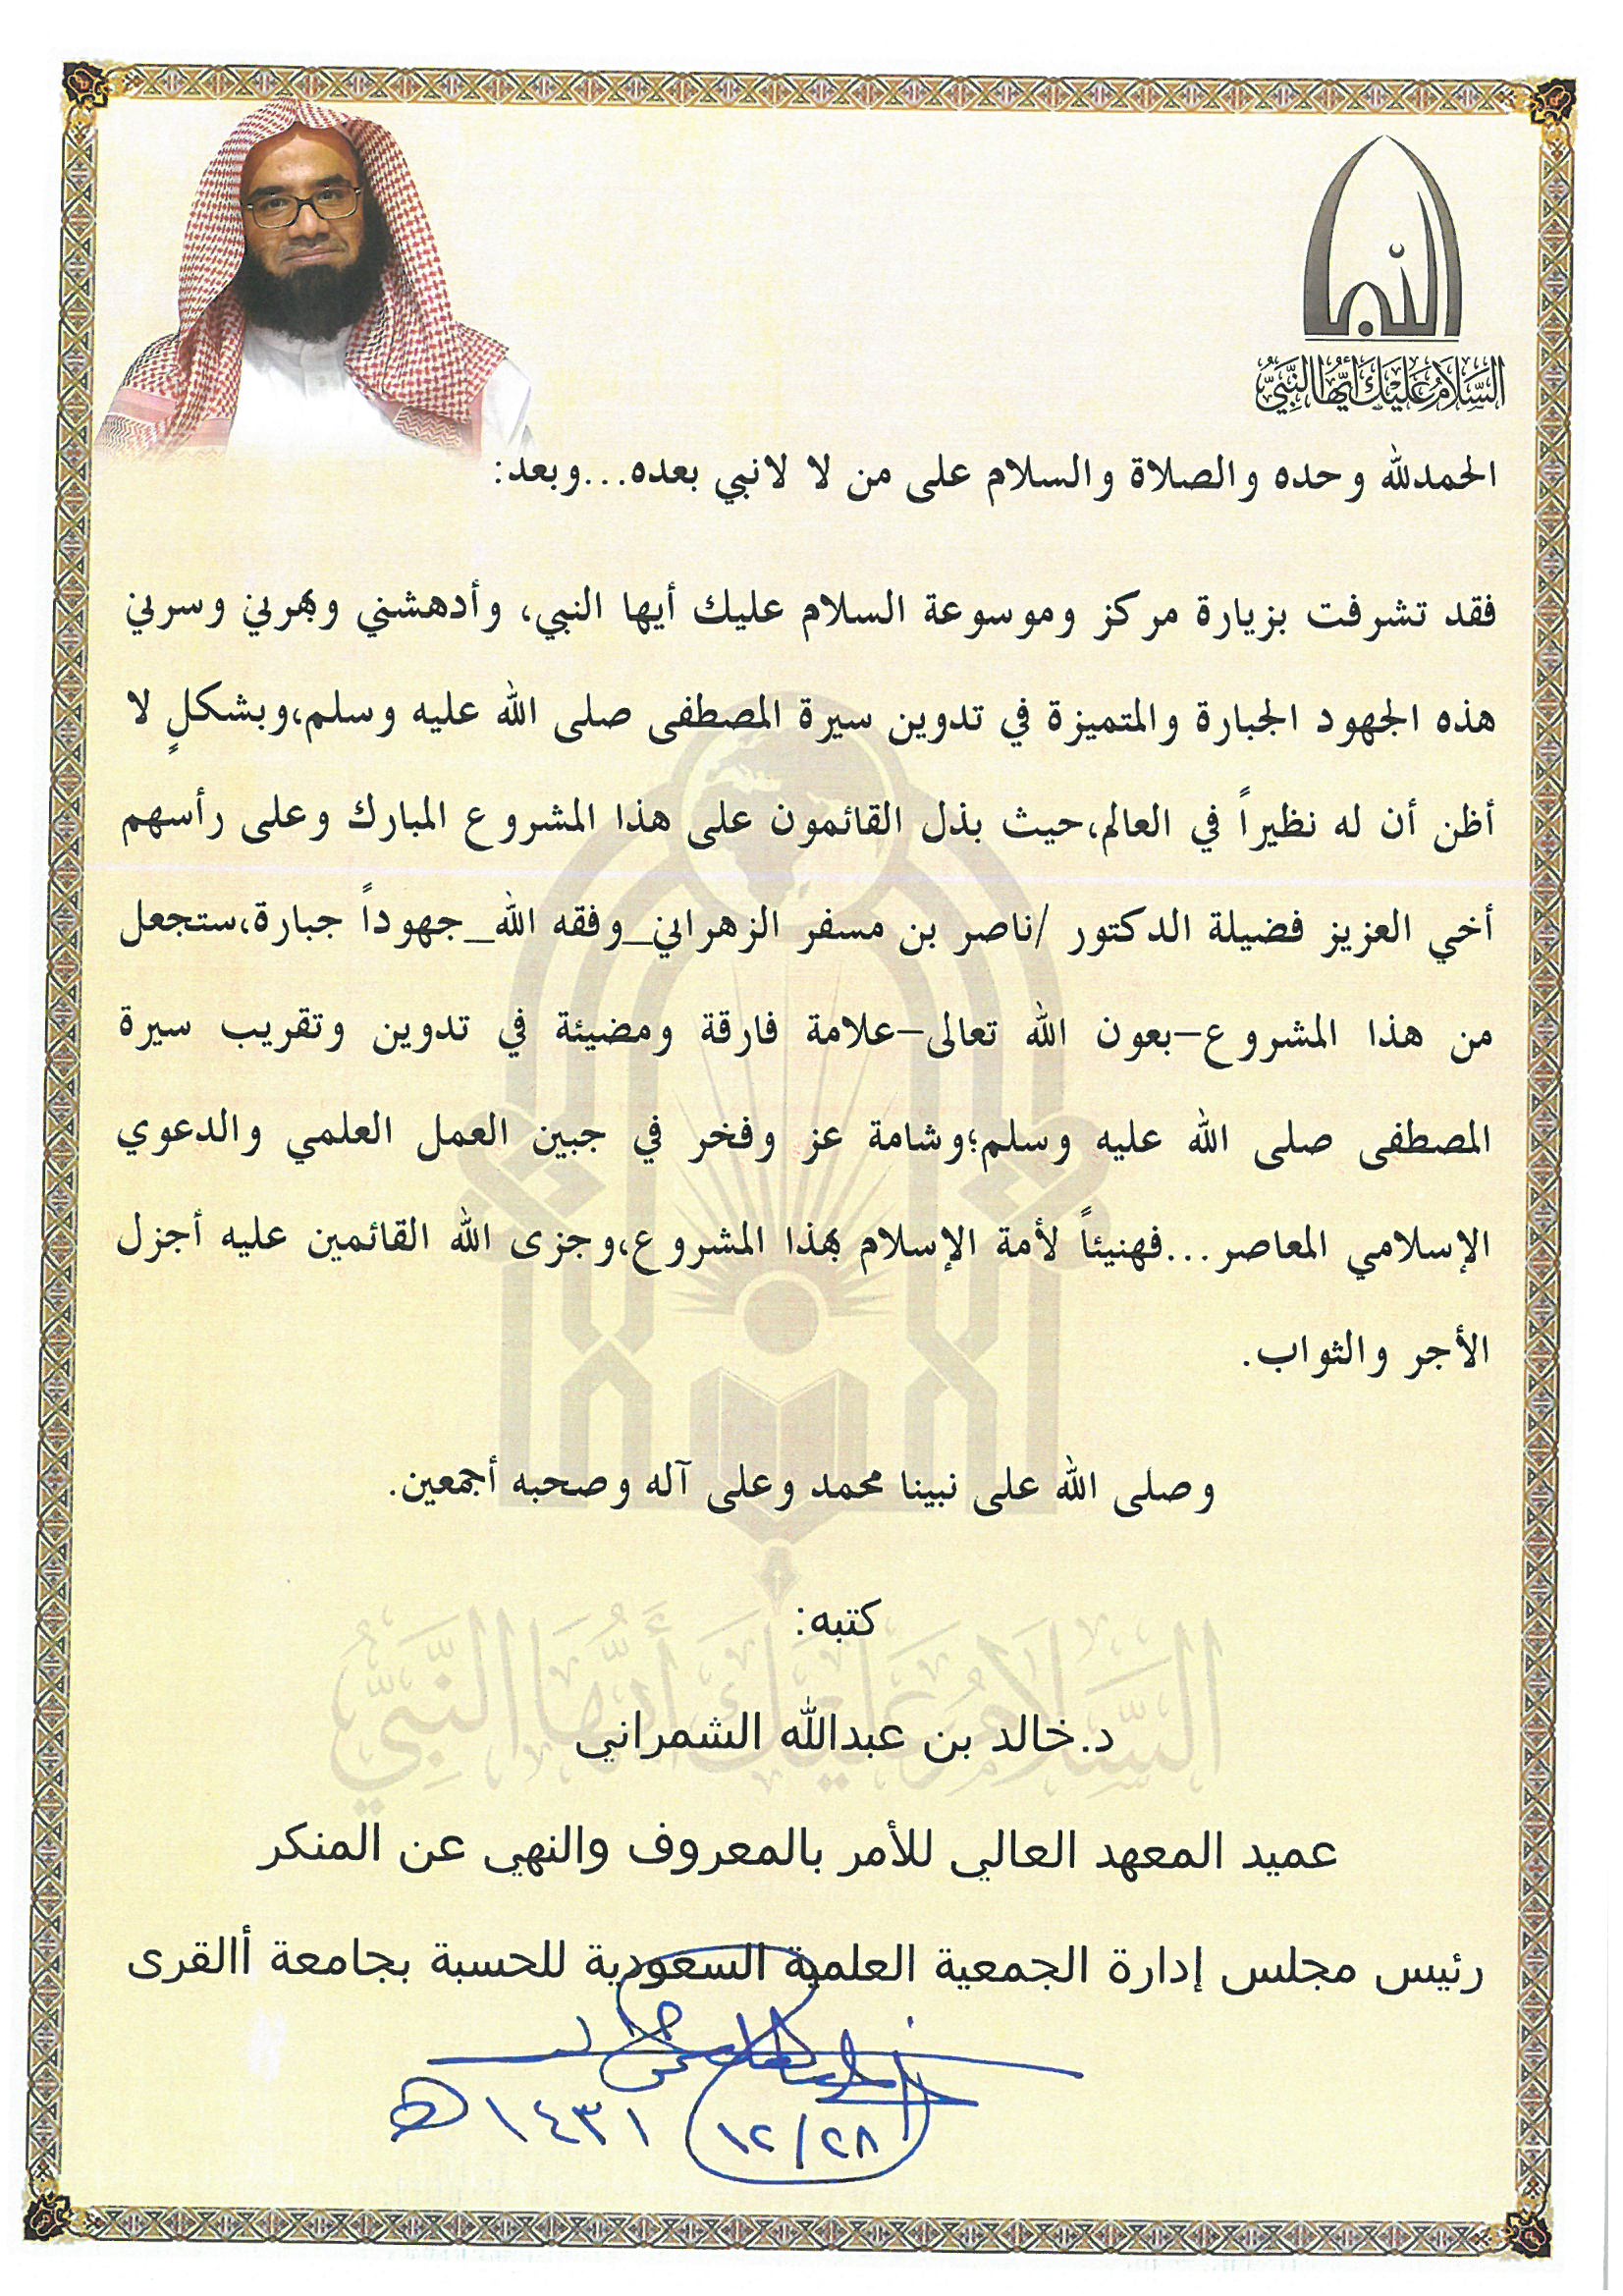 النبي
السَّلَامُ عَلَيْكَ أَيُّهَا النَّبِيُّ
الحمدلله وحده والصلاة والسلام على من لا لانبي بعده...وبعد:
فقد تشرفت بزيارة مركز وموسوعة السلام عليك أيها النبي، وأدهشني وبهرني وسرني
هذه الجهود الجبارة والمتميزة في تدوين سيرة المصطفى صلى الله عليه وسلم،وبشكلٍ لا
أظن أن له نظيراً في العالم،حيث بذل القائمون على هذا المشروع المبارك وعلى رأسهم
أخي العزيز فضيلة الدكتور /ناصر بن مسفر الزهراني_وفقه الله_جهوداً جبارة،ستجعل
من هذا المشروع-بعون الله تعالى-علامة فارقة ومضيئة في تدوين وتقريب سيرة
المصطفى صلى الله عليه وسلم؛وشامة عز وفخر في جبين العمل العلمي والدعوي
الإسلامي المعاصر...فهنيئاً لأمة الإسلام بهذا المشروع،وجزى الله القائمين عليه أجزل
الأجر والثواب.
وصلى الله على نبينا محمد وعلى آله وصحبه أجمعين.
كتبه:
السَّلَامُ عَلَيْكَ أَيُّهَا النَّبِيُّ
د.خالد بن عبدالله الشمراني
عميد المعهد العالي للأمر بالمعروف والنهي عن المنكر
رئيس مجلس إدارة الجمعية العلمية السعودية للحسبة بجامعة أالقرى
١٢/٢٨ ١٤٣١هـ